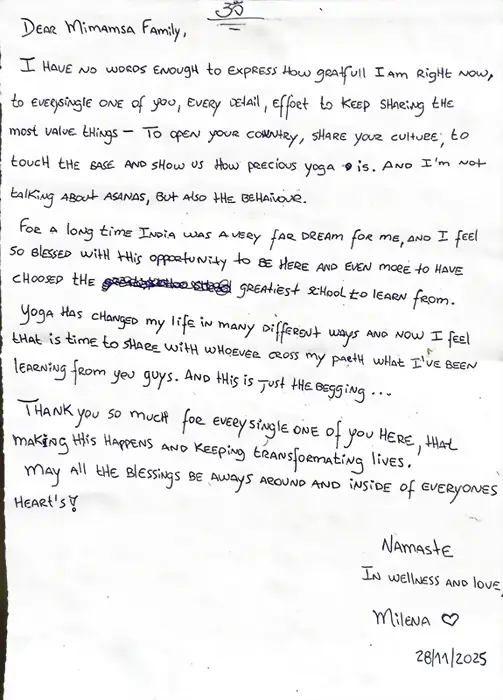 ॐ
Dear Mimamsa Family,
I have no words enough to express how gratfull I am right now,
to everysingle one of you, every detail, effort to keep sharing the
most value things – to open your country, share your culture, to
touch the base and show us how precious yoga is. And I'm not
talking about asanas, but also the behaivour.
For a long time India was a very far dream for me, and I feel
so blessed with this opportunity to be here and even more to have
choosed the greatiest school to learn from.
Yoga has changed my life in many different ways and now I feel
that is time to share with whoever cross my paeth what I've been
learning from you guys. And this is just the begging ...
Thank you so much for everysingle one of you here, that
making this happens and keeping transformating lives.
May all the blessings be aways around and inside of everyones
heart's!
Namaste
In wellness and love,
Milena ♡
28/11/2025